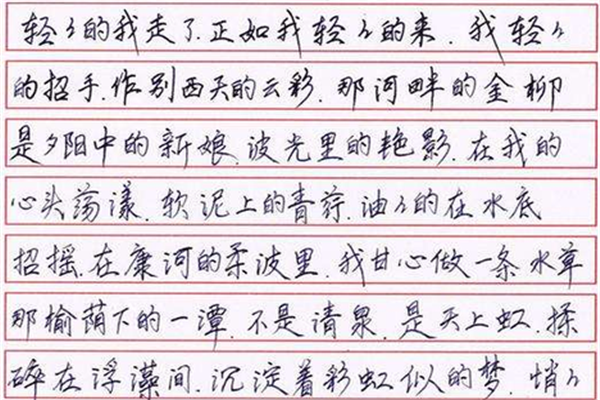 轻々的我走了.正如我轻々的来.我轻々
的招手.作别西天的云彩.那河畔的金柳
是夕阳中的新娘.波光里的艳影.在我的
心头荡漾.软泥上的青荇.油々的在水底
招摇.在康河的柔波里.我甘心做一条水草
那榆荫下的一潭.不是清泉.是天上虹.揉
碎在浮藻间.沉淀着彩虹似的梦.悄々